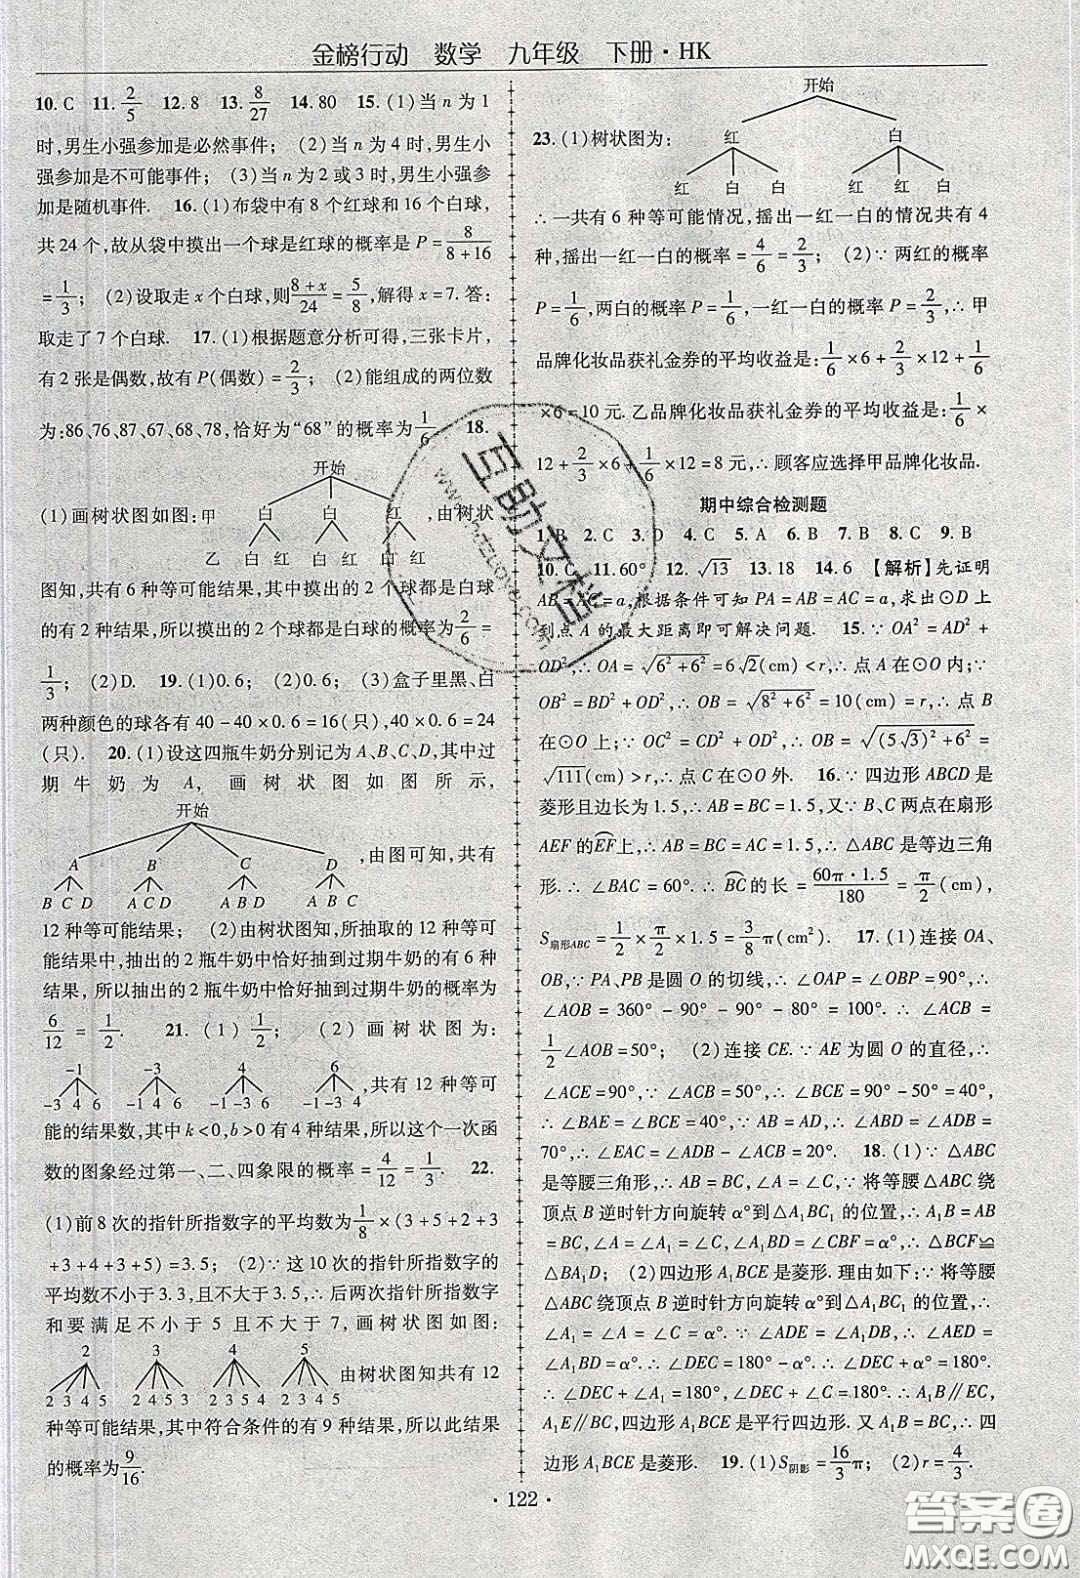 金榜行动 数学 九年级 下册·HK
10. C 11. 2/5 12. 8 13. 8/27 14. 80 15. (1)当 n 为 1
时,男生小强参加是必然事件; (2)当 n 为 4 时,男生小
强参加是不可能事件; (3)当 n 为 2 或 3 时,男生小强参
加是随机事件. 16. (1)布袋中有 8 个红球和 16 个白球,
共 24 个,故从袋中摸出一个球是红球的概率是 P = 8/(8+16)
= 1/3; (2)设取走 x 个白球,则 (8+x)/24 = 5/8,解得 x=7. 答:
取走了 7 个白球. 17. (1)根据题意分析可得,三张卡片,
有 2 张是偶数,故有 P(偶数) = 2/3; (2)能组成的两位数
为:86、76、87、67、68、78,恰好为“68”的概率为 1/6. 18.
开始
(1)画树状图如图: 甲 白 白 红 ,由树状
乙 白 红 白 红 白 红
图知,共有 6 种等可能结果,其中摸出的 2 个球都是白球
的有 2 种结果,所以摸出的 2 个球都是白球的概率为 2/6 =
1/3; (2)D. 19. (1)0.6; (2)0.6; (3)盒子里黑、白
两种颜色的球各有 40-40×0.6=16(只),40×0.6=24
(只). 20. (1)设这四瓶牛奶分别记为 A、B、C、D,其中过
期牛奶为 A, 画树状图如图所示,
开始
A B C D ,由图可知,共有
B C D A C D A B D A B C
12 种等可能结果; (2)由树状图知,所抽取的 12 种等可
能结果中,抽出的 2 瓶牛奶中恰好抽到过期牛奶的有 6 种
结果,所以抽出的 2 瓶牛奶中恰好抽到过期牛奶的概率为
6/12 = 1/2. 21. (1) 1/2; (2)画树状图为:
-1 -3 4 6 ,共有 12 种等可
-3 4 6 -1 4 6 -1 -3 6 -1 -3 4
能的结果数,其中 k<0,b>0 有 4 种结果,所以这个一次函
数的图象经过第一、二、四象限的概率 = 4/12 = 1/3. 22.
(1)前 8 次的指针所指数字的平均数为 1/8 ×(3+5+2+3
+3+4+3+5)=3.5; (2)∵这 10 次的指针所指数字的
平均数不小于 3.3,且不大于 3.5,∴后两次指针所指数字
和要满足不小于 5 且不大于 7,画树状图如图:
2 3 4 5 由树状图知共有 12
2 3 4 5 2 4 5 3 2 3 4 5 2 3 4 5
种等可能结果,其中符合条件的有 9 种结果,所以此结果
的概率为 9/16.
开始
23. (1)树状图为: 红 白
红 白 白 红 红 白
∴一共有 6 种等可能情况,摇出一红一白的情况共有 4
种,摇出一红一白的概率 = 4/6 = 2/3; (2)∵两红的概率
P = 1/6,两白的概率 P = 1/6,一红一白的概率 P = 2/3,∴甲
品牌化妆品获礼金券的平均收益是: 1/6 ×6+ 2/3 ×12+ 1/6
×6=10 元. 乙品牌化妆品获礼金券的平均收益是: 1/6 ×
12+ 2/3 ×6+ 1/6 ×12=8 元,∴顾客应选择甲品牌化妆品.
期中综合检测题
1. B 2. C 3. D 4. C 5. A 6. B 7. B 8. C 9. B
10. C 11. 60° 12. √13 13. 18 14. 6 【解析】先证明
AB=AC=a,根据条件可知 PA=AB=AC=a,求出⊙D 上
到点 A 的最大距离即可解决问题. 15. ∵OA²=AD²+
OD²,∴OA=√(6²+6²)=6√2(cm)<r,∴点 A 在⊙O 内;∵
OB²=BD²+OD²,∴OB=√(8²+6²)=10(cm)=r,∴点 B
在⊙O 上;∵OC²=CD²+OD²,∴OB=√((5√3)²+6²)=
√111(cm)>r,∴点 C 在⊙O 外. 16. ∵四边形 ABCD 是
菱形且边长为 1.5,∴AB=BC=1.5,又∵B、C 两点在扇形
AEF 的 EF⌒上,∴AB=BC=AC=1.5,∴△ABC 是等边三角
形. ∴∠BAC=60°. ∴BC⌒的长 = (60π·1.5)/180 = π/2(cm),
S扇形ABC = 1/2 × π/2 ×1.5 = 3/8 π(cm²). 17. (1)连接 OA、
OB,∵PA、PB 是圆 O 的切线,∴∠OAP=∠OBP=90°,
∴∠AOB=360°-90°-90°-80°=100°,∴∠ACB=
1/2∠AOB=50°; (2)连接 CE. ∵AE 为圆 O 的直径,∴
∠ACE=90°,∵∠ACB=50°,∴∠BCE=90°-50°=40°,
∴∠BAE=∠BCE=40°,∵AB=AD,∴∠ABD=∠ADB=
70°,∴∠EAC=∠ADB-∠ACB=20°. 18. (1)∵△ABC
是等腰三角形,∴AB=BC,∠A=∠C,∵将等腰△ABC 绕
顶点 B 逆时针方向旋转 α°到△A₁BC₁ 的位置,∴A₁B=AB
=BC,∠A=∠A₁=∠C,∠A₁BD=∠CBF=α°,∴△BCF≌
△BA₁D; (2)四边形 A₁BCE 是菱形. 理由如下:∵将等腰
△ABC 绕顶点 B 逆时针方向旋转 α°到△A₁BC₁ 的位置,∴
∠A₁=∠A=∠C=α°. ∵∠ADE=∠A₁DB,∴∠AED=
∠A₁BD=α°. ∴∠DEC=180°-∠AED=180°-α°.
∴∠DEC+∠A₁=180°,∠C+∠DEC=180°. ∴A₁B∥EC,
A₁E∥BC,∴四边形 A₁BCE 是平行四边形. 又 A₁B=BC,∴四
边形 A₁BCE 是菱形. 19. (1)S阴影 = 16/3 π; (2)r = 4/3.
·122·
互助文档
答案圈
MXQE.COM